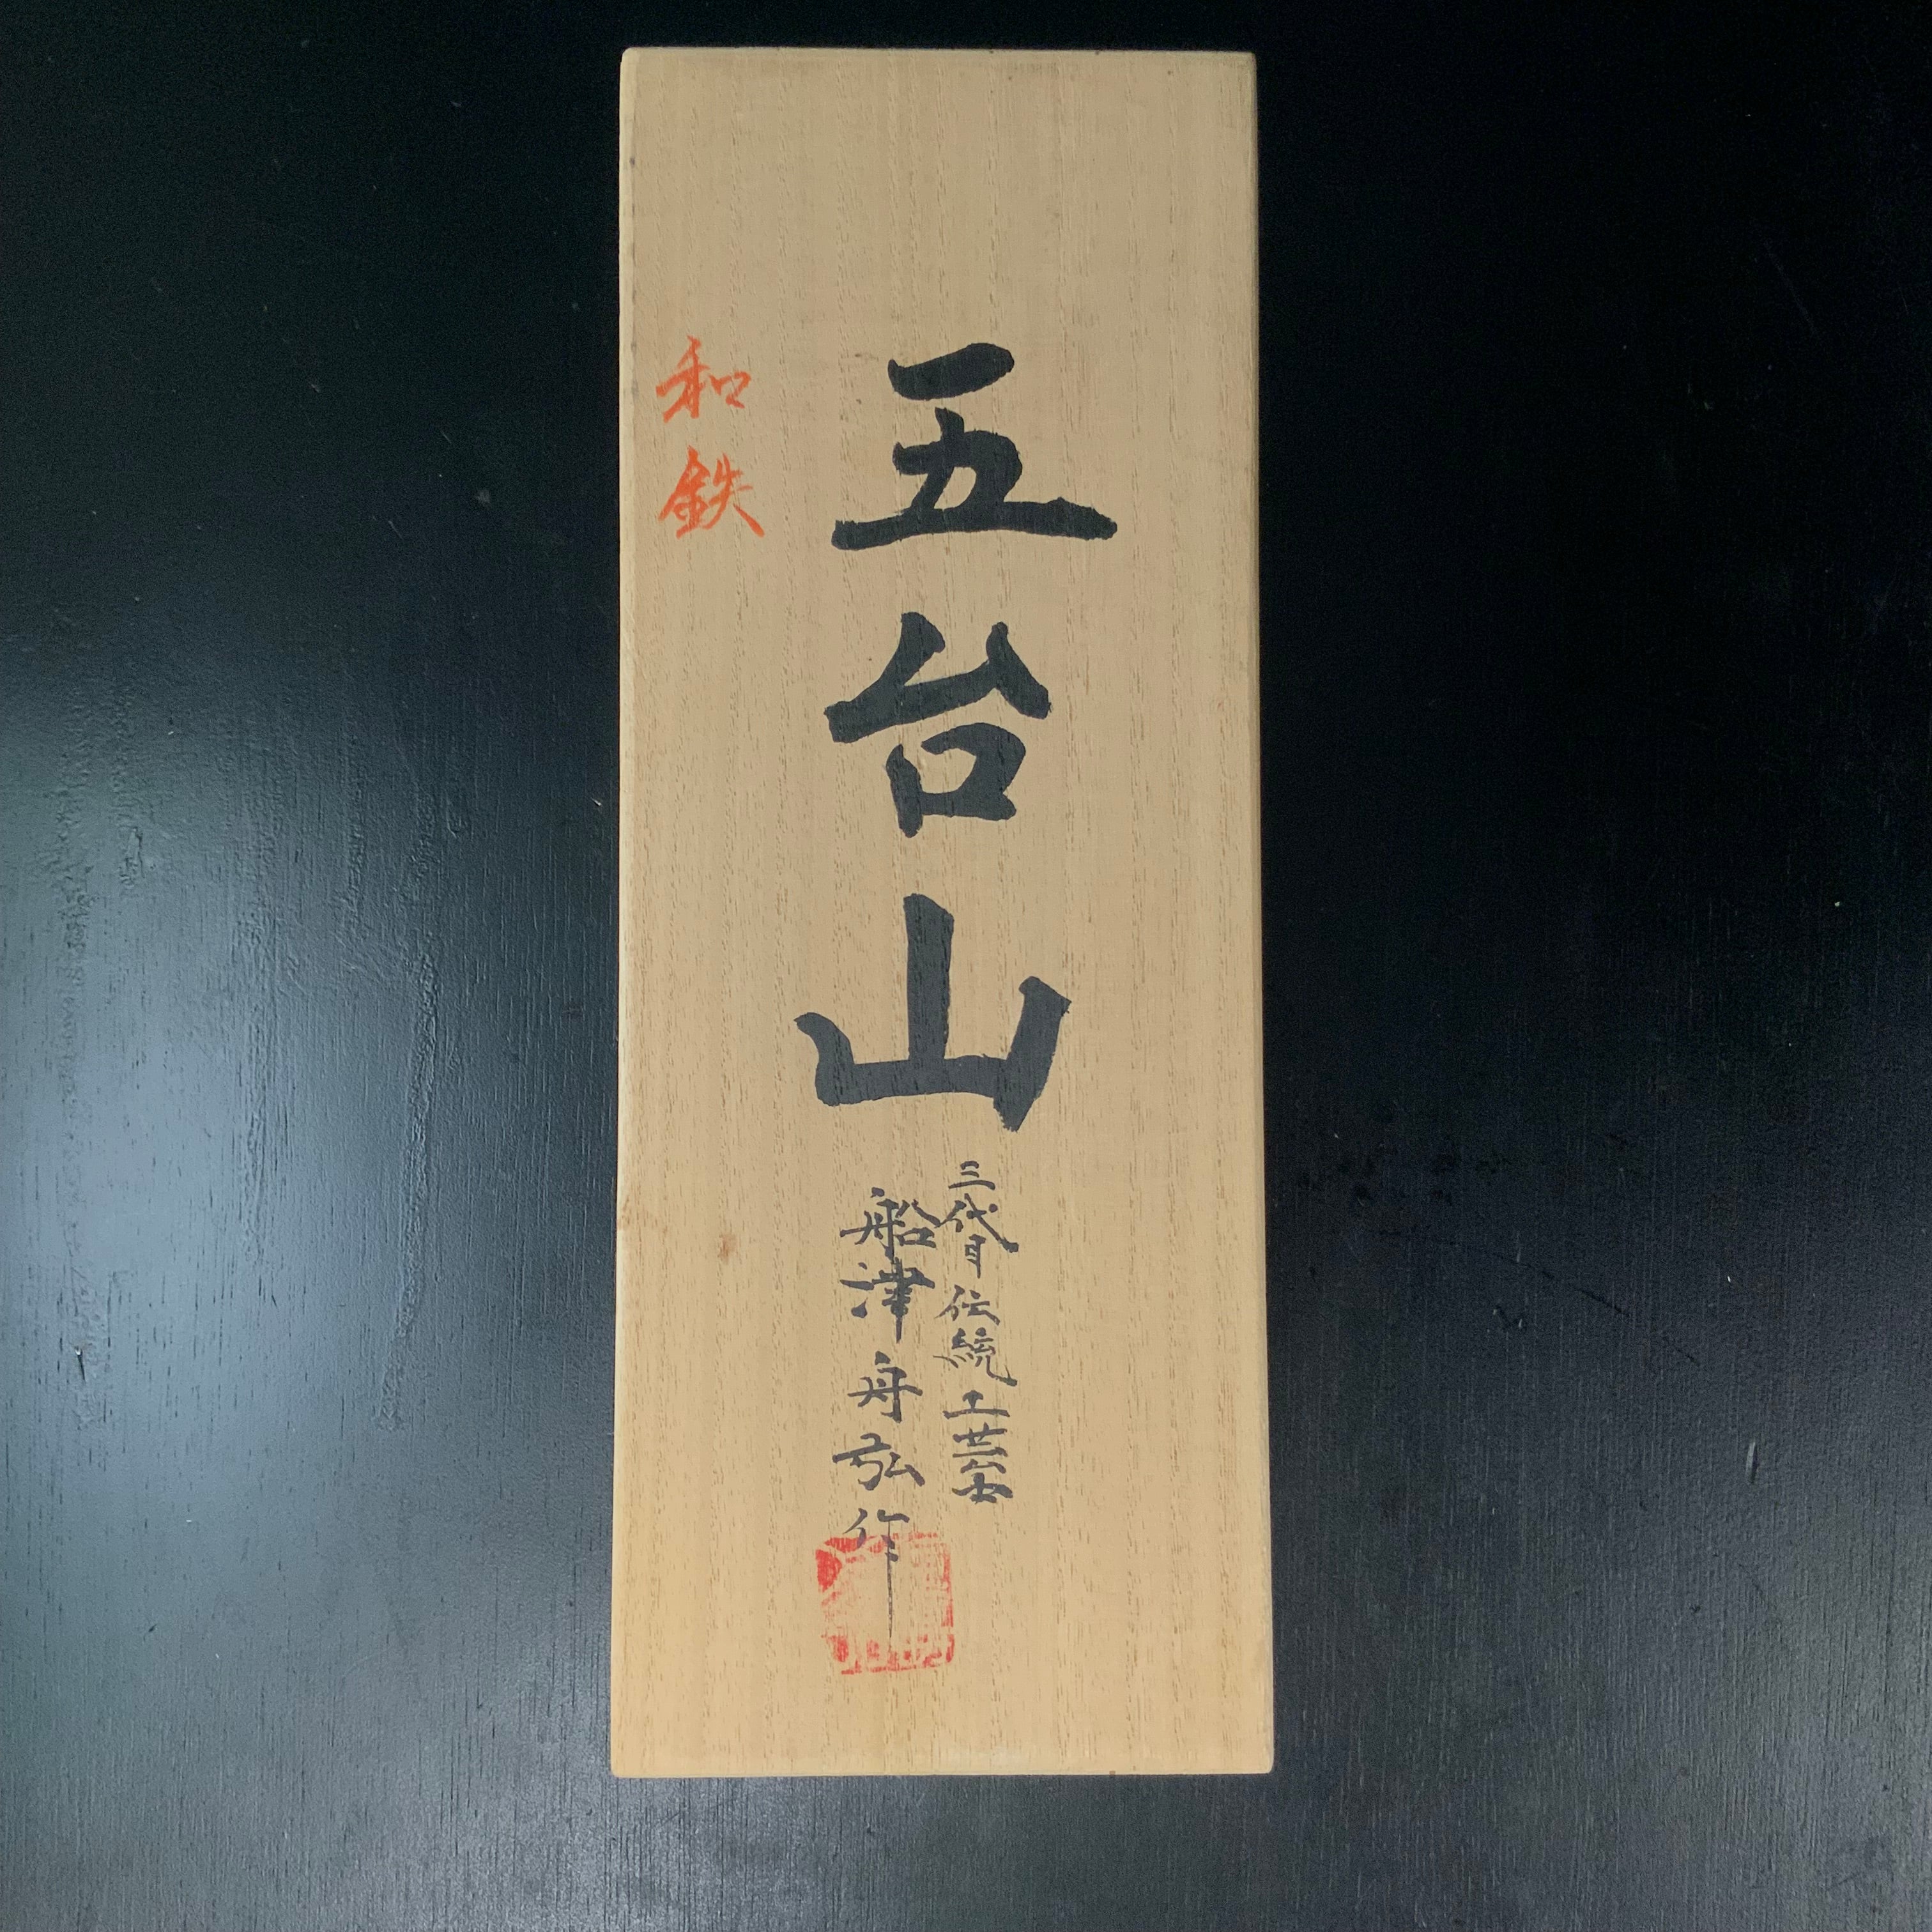 五台山
三代目伝統工芸士
船津舟弘作
和鉄